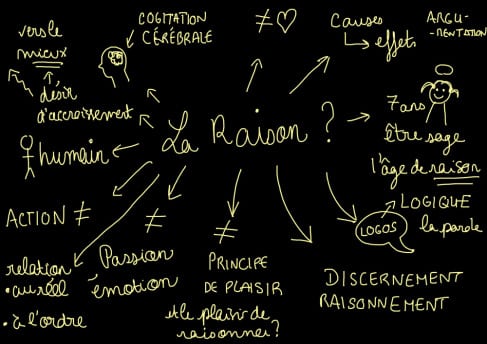 vers le
mieux
désir
d'accroissement
COGITATION
CÉRÉBRALE
≠ ♡
causes
↳ effets
ARGU-
-MENTATION
humain
La Raison ?
7 ans
être sage
l'âge de raison
LOGIQUE
LOGOS
la parole
ACTION ≠
relation
• au réel
• à l'ordre
≠
Passion
émotion
≠
PRINCIPE
DE PLAISIR
et le plaisir de
raisonner ?
DISCERNEMENT
RAISONNEMENT